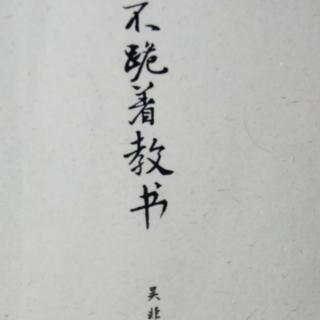 不跪着教书
吴非